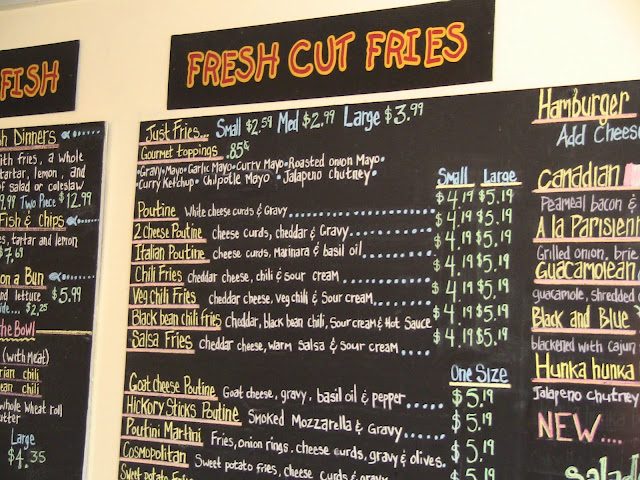 FISH
FRESH CUT FRIES
Dinners
with fries, a whole
tartar, lemon, and
of salad or coleslaw
Two Piece $12.99
Fish & Chips
tartar and lemon
$7.69
on a Bun
and lettuce $5.99
$2.25
the Bowl
(with meat)
chili
chili
whole wheat roll
Large
$4.35
Just Fries... Small $2.59 Med $2.99 Large $3.99
Gourmet toppings .85¢
•Gravy•Mayo•Garlic Mayo•Curry Mayo•Roasted onion Mayo•
•Curry Ketchup• Chilpotle Mayo • Jalapeno chutney•
Small Large
Poutine White cheese curds & Gravy $4.19 $5.19
2 Cheese Poutine cheese curds, cheddar & Gravy $4.19 $5.19
Italian Poutine cheese curds, Marinara & basil oil $4.19 $5.19
Chili Fries cheddar cheese, chili & sour cream $4.19 $5.19
Veg Chili Fries cheddar cheese, veg chili & sour cream $4.19 $5.19
Black bean chili Fries cheddar, black bean chili, sour cream & Hot Sauce $4.19 $5.19
Salsa Fries cheddar cheese, warm salsa & sour cream $4.19 $5.19
One Size
Goat cheese Poutine Goat cheese, gravy, basil oil & pepper $5.19
Hickory Sticks Poutine Smoked Mozzarella & Gravy $5.19
Poutini Martini Fries, onion rings, cheese curds, gravy & olives. $5.19
Cosmopolitan Sweet potato fries, cheese curds & gravy $5.19
Sweet potato Fries
Hamburger
Add Cheese
Canadian
Peameal bacon &
A la Parisienn
Grilled onion, brie
Guacamolean
guacamole, shredded
Black and Blue
blackened with cajun
Hunka hunka
Jalapeno chutney
NEW....
Salad